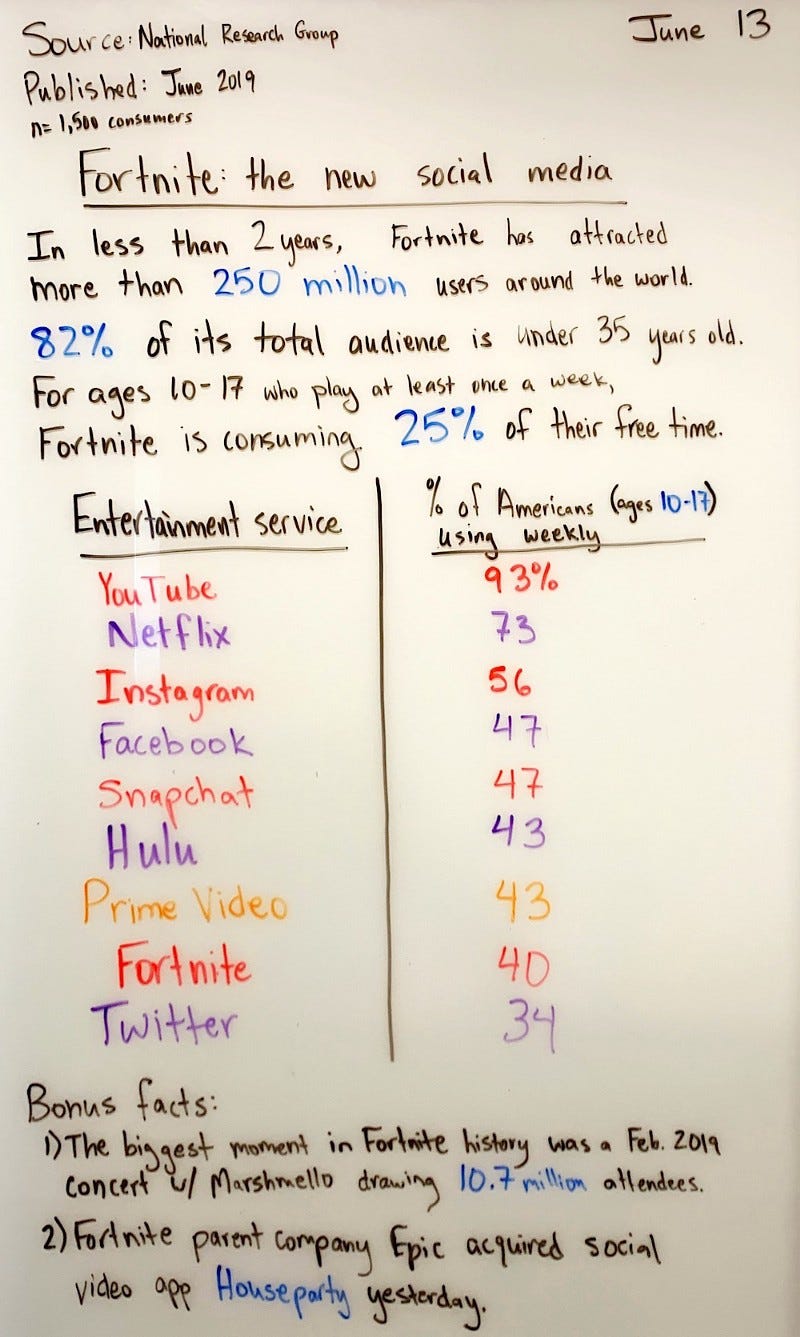 Source: National Research Group
June 13
Published: June 2019
n= 1,500 consumers
Fortnite: the new social media
In less than 2 years, Fortnite has attracted
more than 250 million users around the world.
82% of its total audience is under 35 years old.
For ages 10-17 who play at least once a week,
Fortnite is consuming 25% of their free time.
Entertainment service
% of Americans (ages 10-17)
using weekly
YouTube 93%
Netflix 73
Instagram 56
Facebook 47
Snapchat 47
Hulu 43
Prime Video 43
Fortnite 40
Twitter 34
Bonus facts:
1) The biggest moment in Fortnite history was a Feb. 2019
concert w/ Marshmello drawing 10.7 million attendees.
2) Fortnite parent company Epic acquired social
video app Houseparty yesterday.